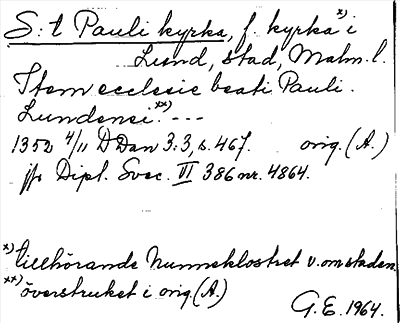 S:t Pauli kyrka, f. kyrka x) i
Lund, stad, Malm. l.
Item ecclesie beati Pauli
Lundensi. xx) ---
1352 4/11 DDan 3:3, s. 467. orig. (A.)
jfr Dipl. Svec. VI 386 nr. 4864.
x) tillhörande Nunneklostret v. om staden.
xx) överstruket i orig. (A.)
G.E. 1964.